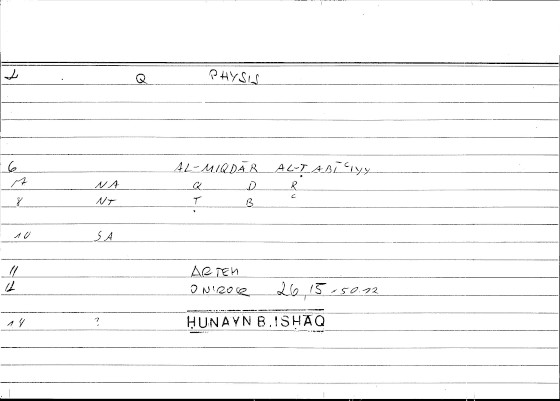 1 Q PHYSIS
6 AL-MIQDĀR AL-ṬABĪʿIYY
7 NA Q D R
8 NT Ṭ B ʿ
10 SA
11 ARTEM
12 ONIROCR 26,15 = 50 12
14 ? HUNAYN B. ISHĀQ